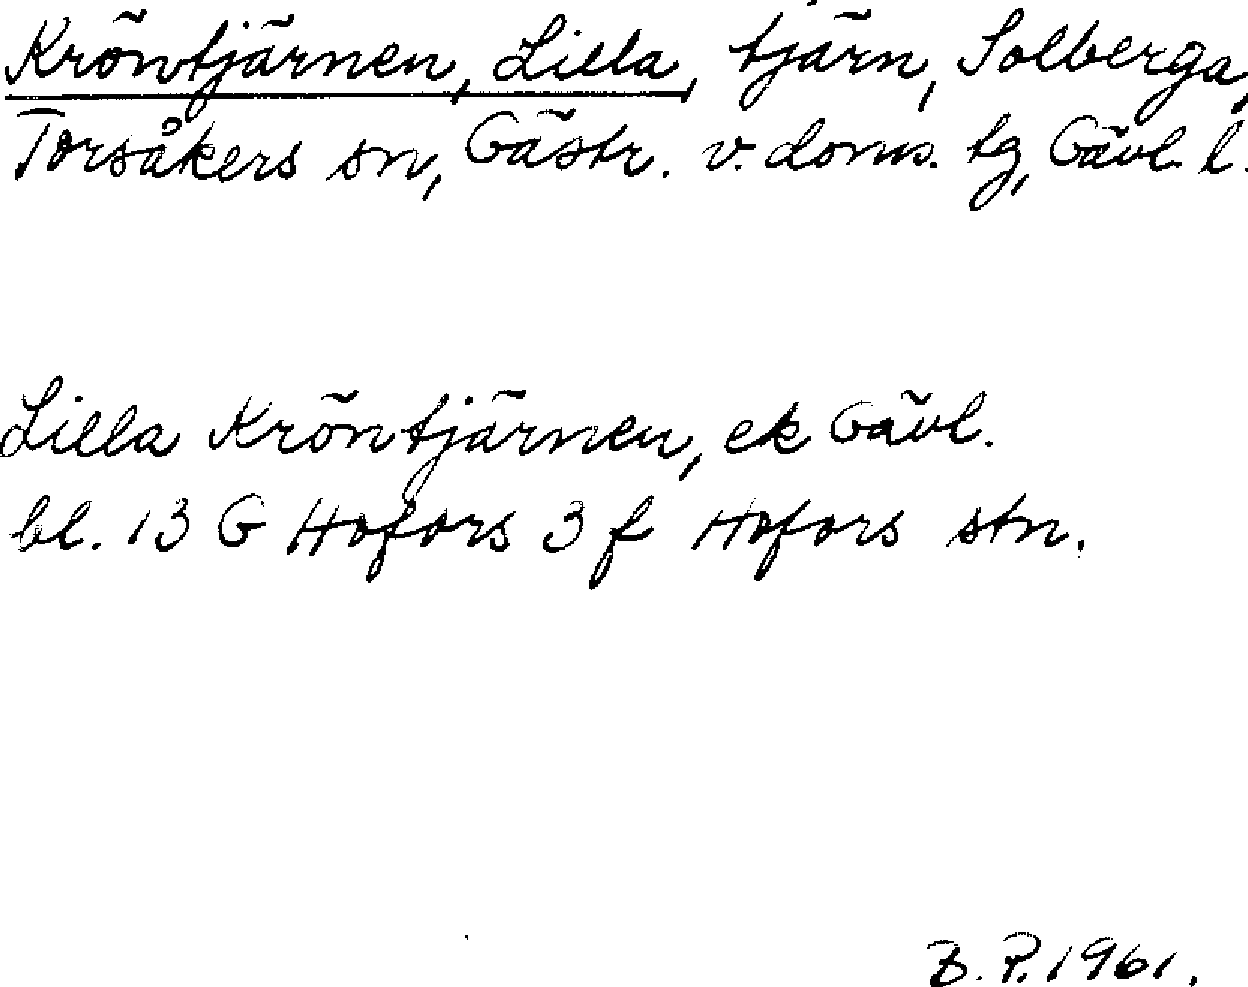 Kröntjärnen, Lilla, tjärn, Solberga,
Torsåkers sn, Gästr. v. doms. tg, Gävl. l.
Lilla Kröntjärnen, ek Gävl.
bl. 13 G Hofors 3 f Hofors stn.
B. P. 1961.